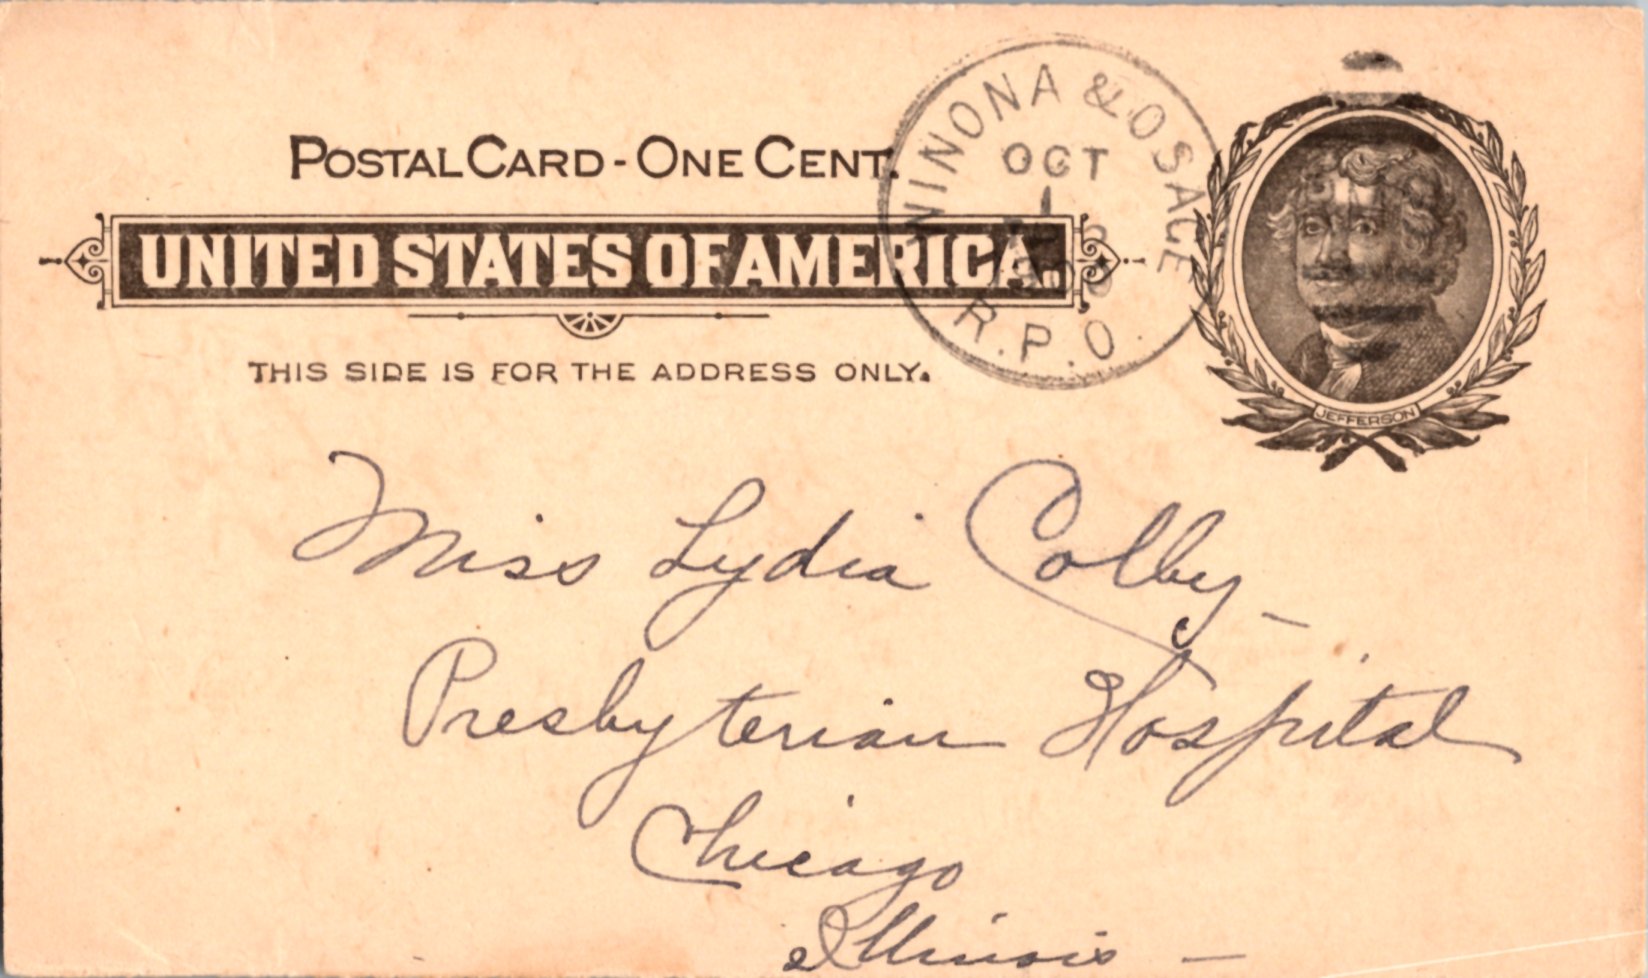 POSTAL CARD - ONE CENT.
UNITED STATES OF AMERICA
THIS SIDE IS FOR THE ADDRESS ONLY.
WINONA & OSAGE
OCT
R.P.O.
JEFFERSON
Miss Lydia Colby
Presbyterian Hospital
Chicago
Illinois